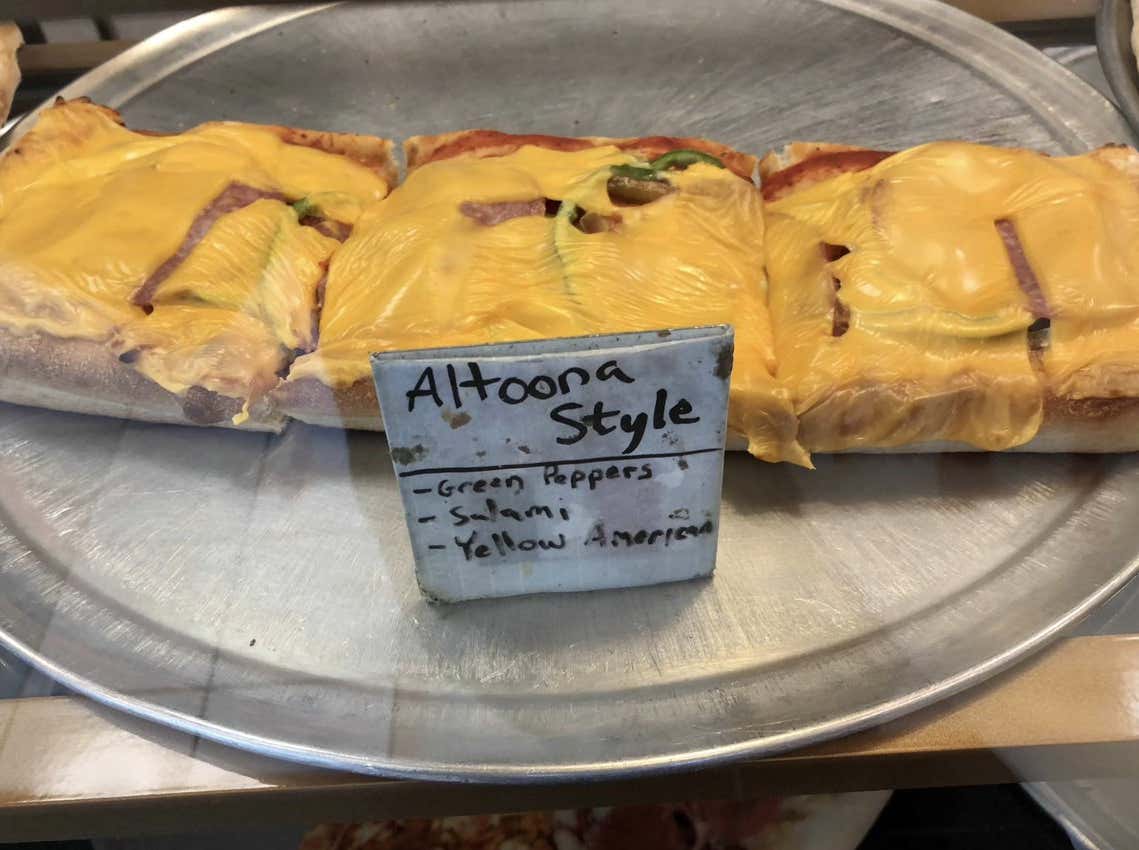 Altoona
Style
- Green Peppers
- Salami
- Yellow American